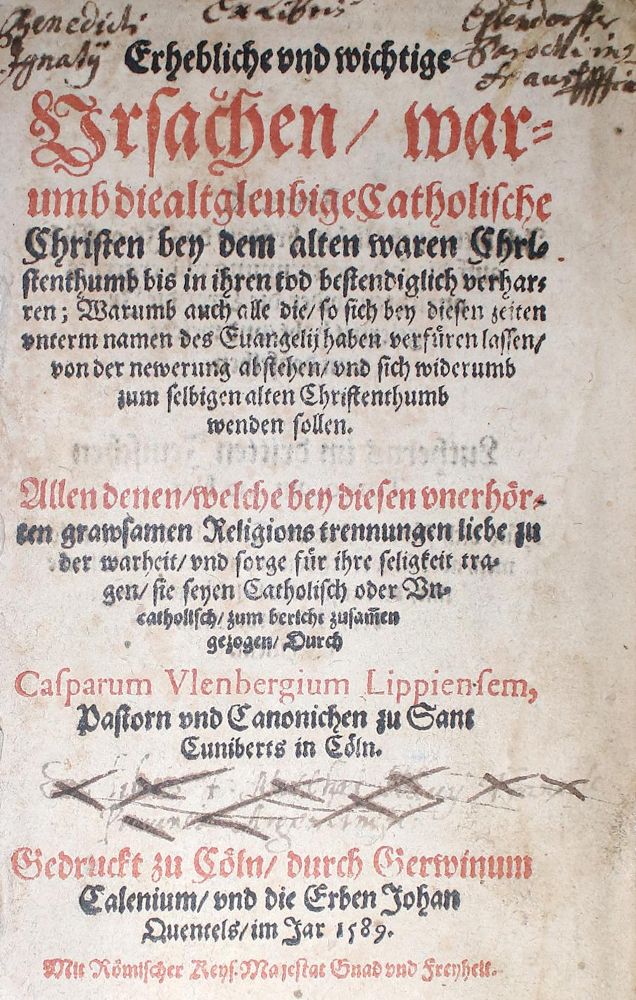 Benedicti Ex Libris
Ignatij
Erhebliche vnd wichtige
Vrsachen/ war-
umb die altgleubige Catholische
Christen bey dem alten waren Chri-
stenthumb bis in ihren tod bestendiglich verhar-
ren; Warumb auch alle die/ so sich bey diesen zeiten
vnterm namen des Euangelij haben verfüren lassen/
von der newerung abstehen/ vnd sich widerumb
zum selbigen alten Christenthumb
wenden sollen.
Allen denen/ welche bey diesen vnerhör-
ten grawsamen Religions trennungen liebe zu
der warheit/ vnd sorge für ihre seligkeit tra-
gen/ sie seyen Catholisch oder Vn-
catholisch/ zum bericht zusam̄en
gezogen/ Durch
Casparum Vlenbergium Lippiensem,
Pastorn vnd Canonichen zu Sant
Cuniberts in Cöln.
Gedruckt zu Cöln/ durch Gerwinum
Calenium/ vnd die Erben Johan
Quentels/ im Jar 1589.
Mit Römischer Keys. Majestat Gnad vnd Freyheit.